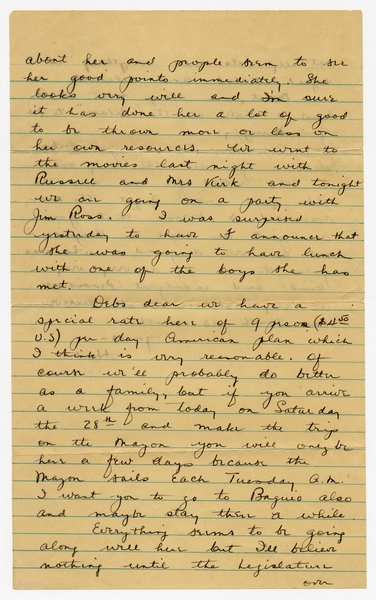 about her and people seem to see
her good points immediately. She
looks very well and I'm sure
it has done her a lot of good
to be thrown more or less on
her own resources. We went to
the movies last night with
Russell and Mrs Kirk and tonight
we are going on a party with
Jim Ross. I was surprised
yesterday to have J announce that
she was going to have lunch
with one of the boys she has
met.
Debs dear we have a
special rate here of 9 pesos ($4.50
U.S) per day American plan which
I think is very reasonable. Of
course we'll probably do better
as a family, but if you arrive
a week from today on Saturday
the 28th and make the trip
on the Mayon you will only be
here a few days because the
Mayon sails each Tuesday A.M.
I want you to go to Baguio also
and maybe stay there a while.
Everything seems to be going
along well here but I'll believe
nothing until the Legislature
over